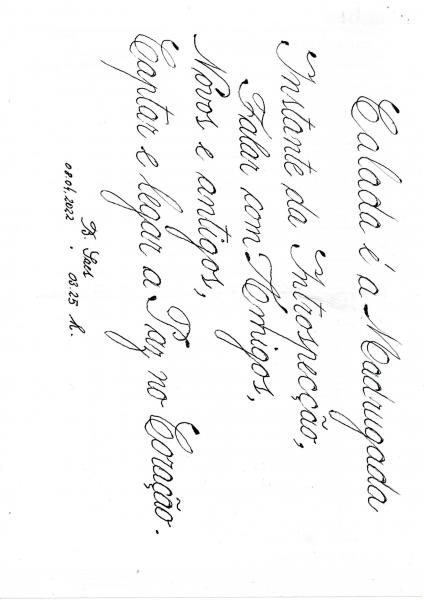 Calada é a Madrugada
Instante da Introspecção,
Falar com Amigos,
Novos e antigos,
Captar e legar a Paz, no Coração.
B. Saes
08.01.2022 . 03.25 h.